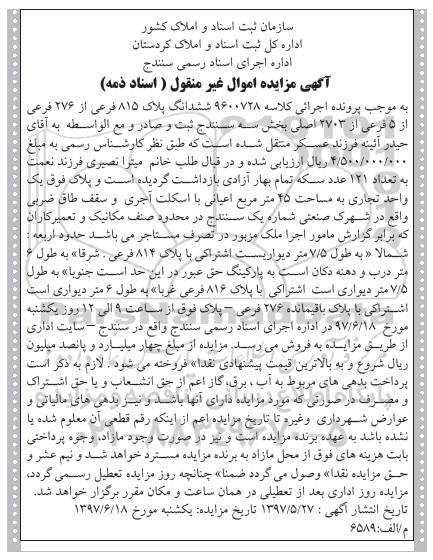 سازمان ثبت اسناد و املاک کشور
اداره کل ثبت اسناد و املاک کردستان
اداره اجرای اسناد رسمی سنندج
آگهی مزایده اموال غیر منقول ( اسناد ذمه)
به موجب پرونده اجرائی کلاسه ۹۶۰۰۷۲۸ ششدانگ پلاک ۸۱۵ فرعی از ۲۷۶ فرعی
از ۵ فرعی از ۲۷۰۳ اصلی بخش سه سنندج ثبت و صادر و مع الواسطه به آقای
حیدر آئینه فرزند عسکر منتقل شده است که طبق نظر کارشناس رسمی به مبلغ
۴/۵۰۰/۰۰۰/۰۰۰ ریال ارزیابی شده و در قبال طلب خانم میترا نصیری فرزند نعمت
به تعداد ۱۲۱ عدد سکه تمام بهار آزادی بازداشت گردیده است و پلاک فوق یک
واحد تجاری به مساحت ۴۵ متر مربع اعیانی با اسکلت آجری و سقف طاق ضربی
واقع در شهرک صنعتی شماره یک سنندج در محدود صنف مکانیک و تعمیرکاران
که برابر گزارش مامور اجرا ملک مزبور در تصرف مستاجر می باشد حدود اربعه :
شمالا" به طول ۷/۵ متر دیواریست اشتراکی با پلاک ۸۱۴ فرعی . شرقا» به طول ۶
متر درب و دهنه دکان است به پارکینگ حق عبور در این حد است جنوبا» به طول
۷/۵ متر دیواری است اشتراکی با پلاک ۸۱۶ فرعی غربا» به طول ۶ متر دیواری است
اشتراکی با پلاک باقیمانده ۲۷۶ فرعی – پلاک فوق از ساعت ۹ الی ۱۲ روز یکشنبه
مورخ ۹۷/۶/۱۸ در اداره اجرای اسناد رسمی سنندج واقع در سنندج – سایت اداری
از طریق مزایده به فروش می رسد. مزایده از مبلغ چهار میلیارد و پانصد میلیون
ریال شروع و به بالاترین قیمت پیشنهادی نقدا» فروخته می شود . لازم به ذکر است
پرداخت بدهی های مربوط به آب ، برق، گاز اعم از حق انشعاب و یا حق اشتراک
و مصرف در صورتی که مورد مزایده دارای آنها باشد و نیز بدهی های مالیاتی و
عوارض شهرداری وغیره تا تاریخ مزایده اعم از اینکه رقم قطعی آن معلوم شده یا
نشده باشد به عهده برنده مزایده است و نیز در صورت وجود مازاد، وجوه پرداختی
بابت هزینه های فوق از محل مازاد به برنده مزایده مسترد خواهد شد و نیم عشر و
حق مزایده نقدا» وصول می گردد ضمنا» چنانچه روز مزایده تعطیل رسمی گردد،
مزایده روز اداری بعد از تعطیلی در همان ساعت و مکان مقرر برگزار خواهد شد.
تاریخ انتشار آگهی : ۱۳۹۷/۵/۲۷ تاریخ مزایده: یکشنبه مورخ ۱۳۹۷/۶/۱۸
م/الف:۶۵۸۹